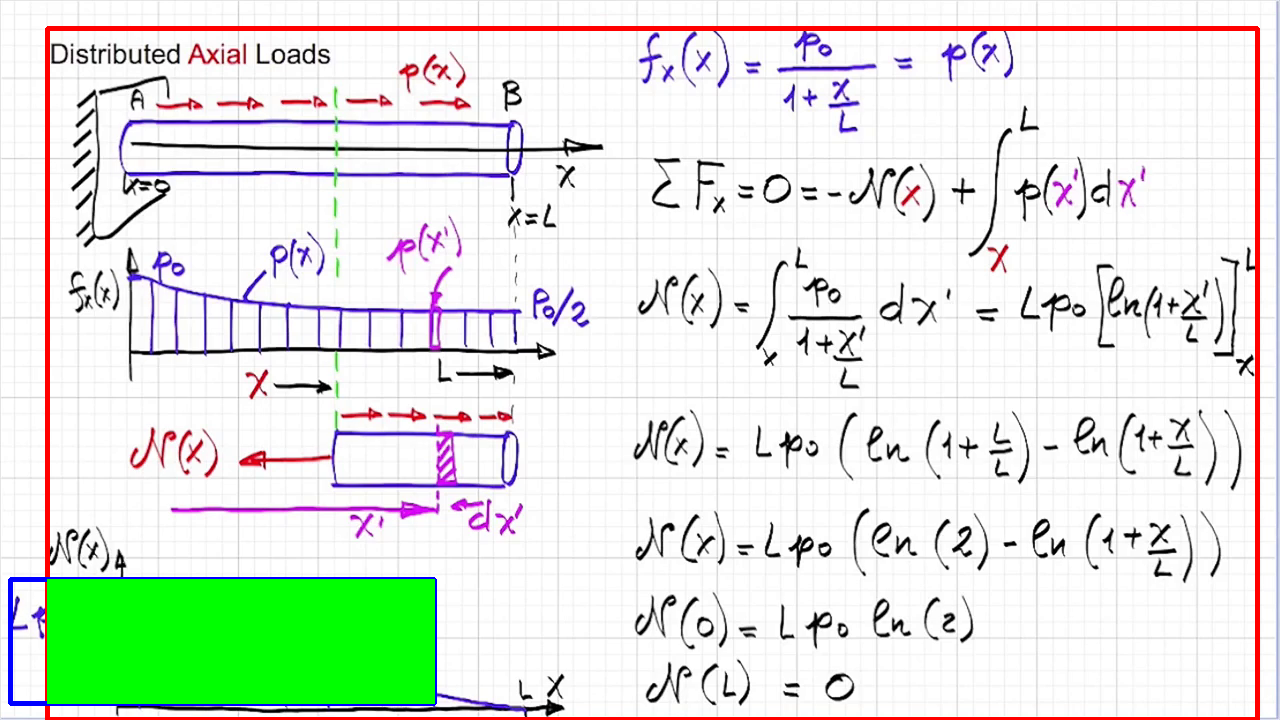 Distributed Axial Loads
p(x)
A
B
x=0
x
x=L
f_x(x)
p_0
p(x)
p(x')
p_0/2
x
L
N(x)
x'
dx'
N(x)
L
L x
f_x(x) = p_0 / (1 + x/L) = p(x)
∑ F_x = 0 = -N(x) + ∫_x^L p(x')dx'
N(x) = ∫_x^L p_0 / (1 + x'/L) dx' = L p_0 [ln(1 + x'/L)]_x^L
N(x) = L p_0 (ln (1 + L/L) - ln (1 + x/L))
N(x) = L p_0 (ln (2) - ln (1 + x/L))
N(0) = L p_0 ln (2)
N(L) = 0